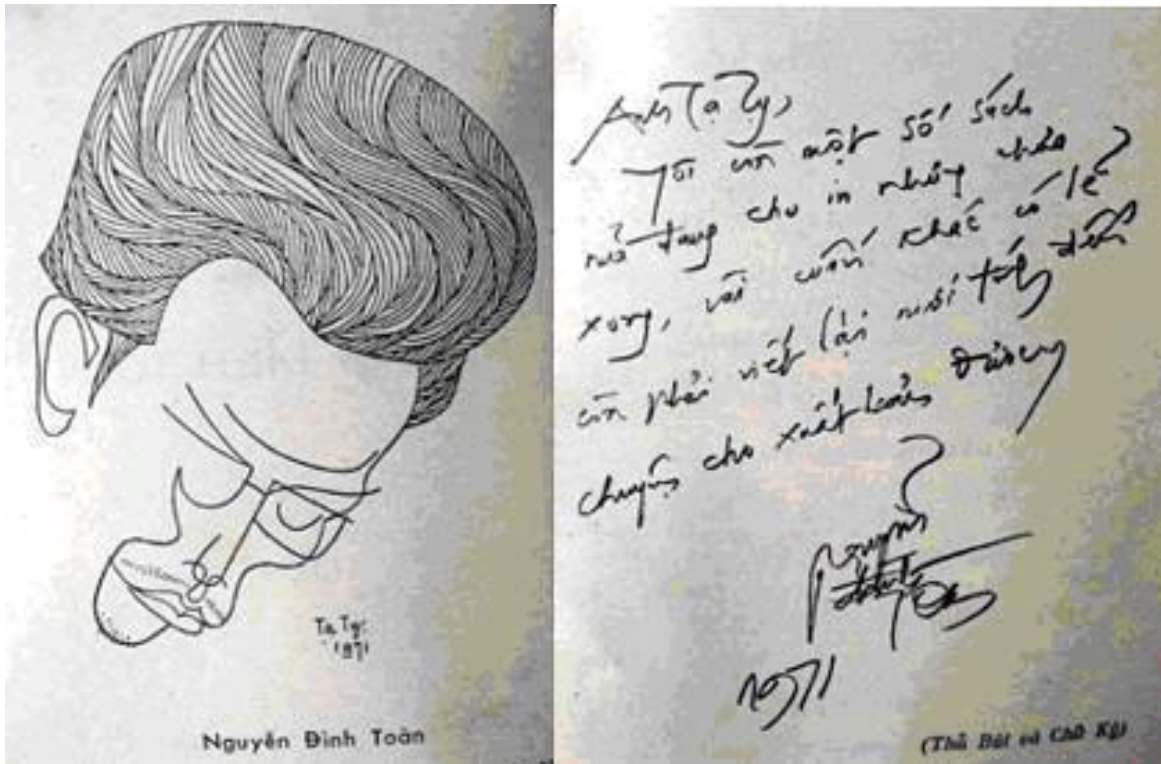 Ta Ty
1971
Nguyễn Đình Toàn
Anh Tạ Tỵ,
Tôi còn một số sách
nữa đang cho in nhưng chưa
xong, vài cuốn khác có lẽ
còn phải viết lại mới tính đến
chuyện cho xuất bản được
Nguyễn
Đình Toàn
1971
(Thủ Bút và Chữ Ký)